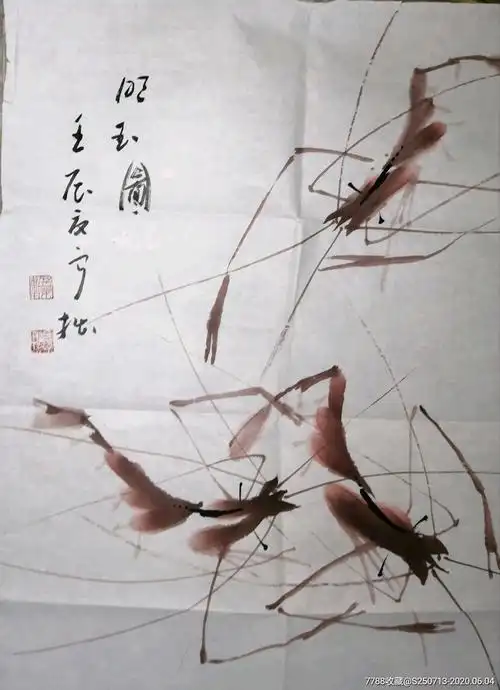 明玉圖
壬辰夜守拙
7788收藏@S250713-2020.06.04